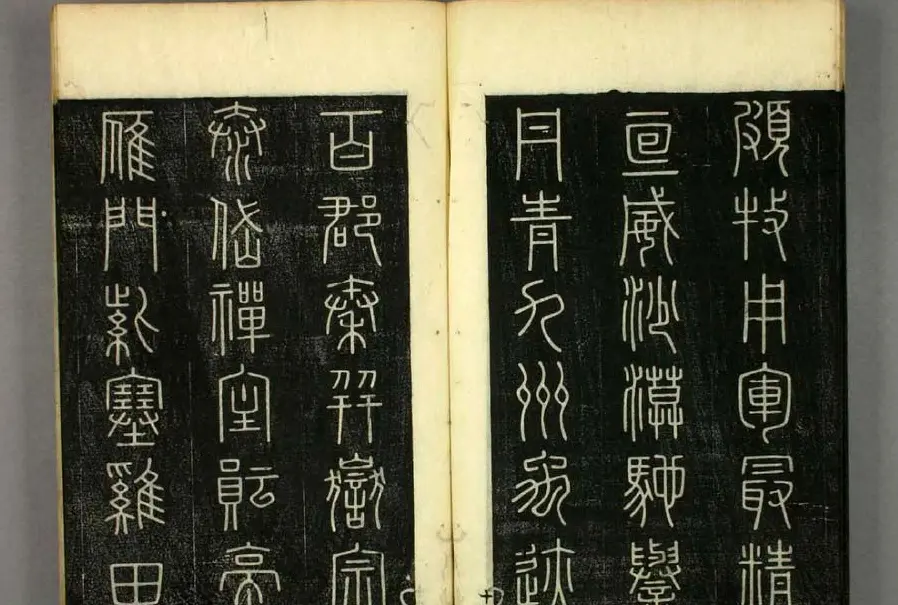 頗牧用軍最精
宣威沙漠馳譽
丹青九州禹迹
百郡秦并嶽宗
泰岱禪主云亭
雁門紫塞雞田